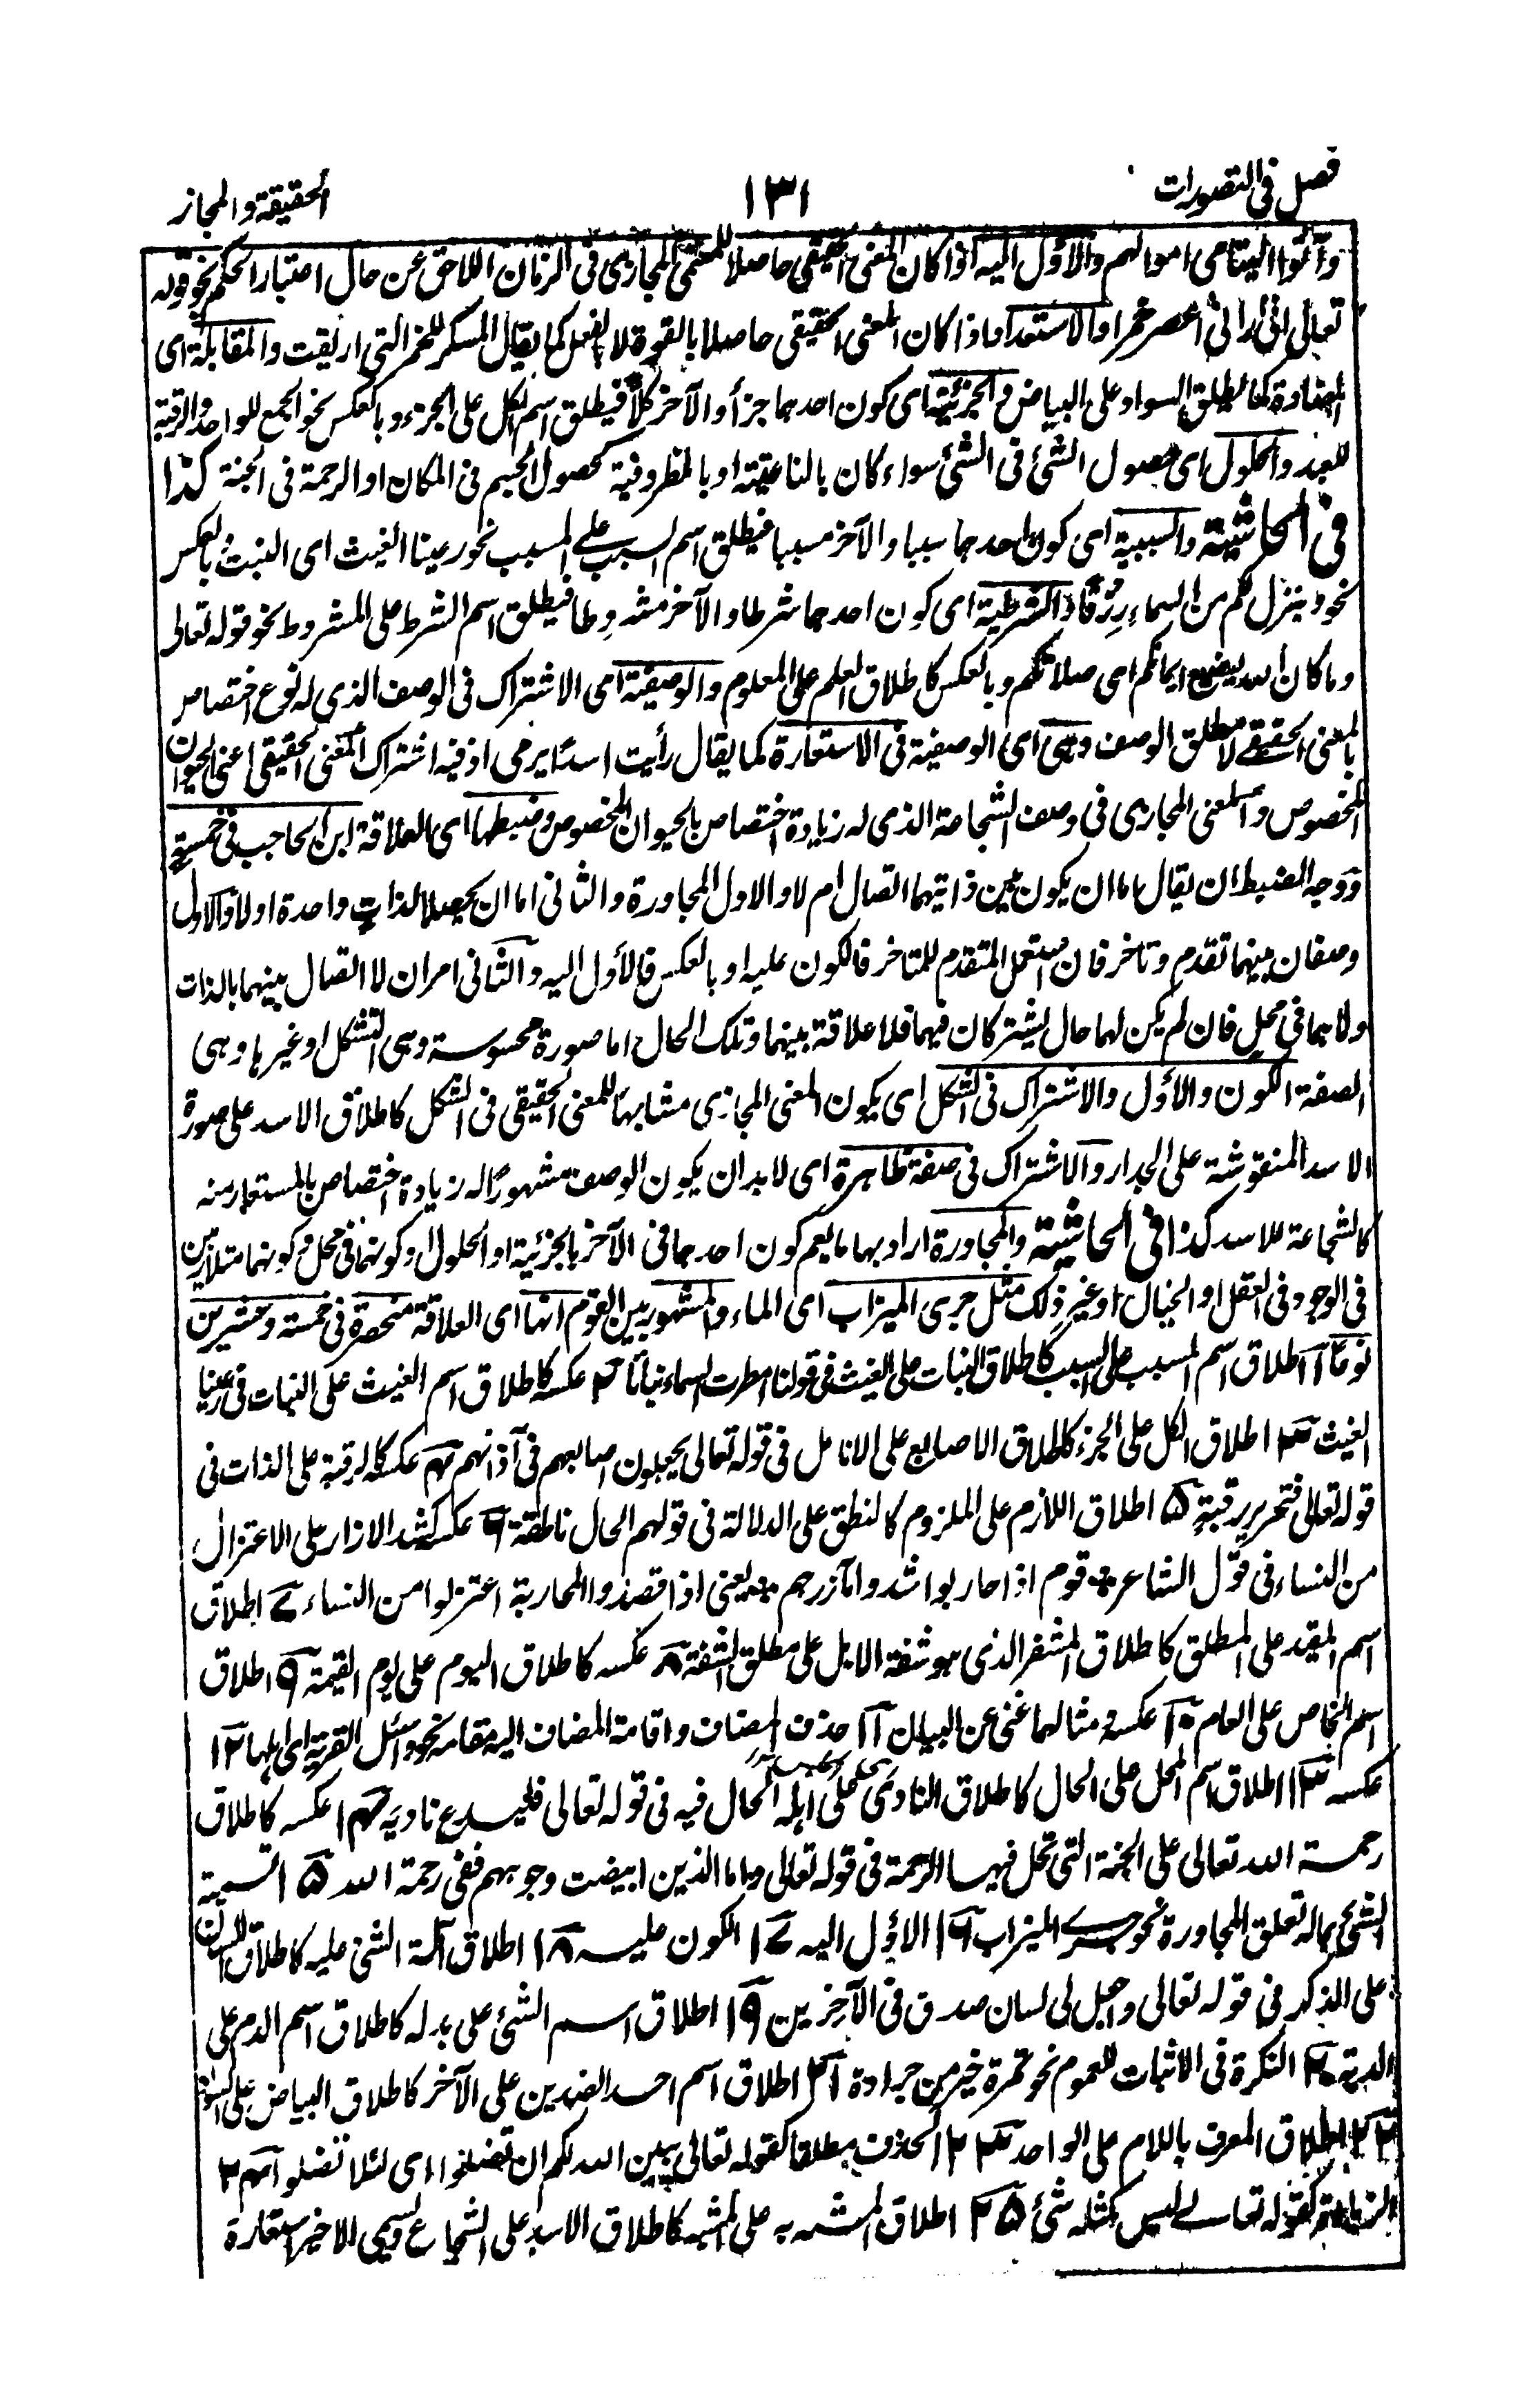 فصل في التصورات
١٣١
الحقيقة والمجاز
وآتوا اليتامى اموالهم والأول اليه اذا كان المعنى الحقيقي حاصلا للمعنى المجازي في الزمان اللاحق عن حال اعتبار الحكم نحو قوله
تعالى اني أراني اعصر خمرا والاستعداد اذا كان المعنى الحقيقي حاصلا بالقوة لا بالفعل كما يقال المسكر للخمر التي اريقت والمقابلة اى
المضادة كما يطلق السواد على البياض والجزئية اى كون احدهما جزأ والآخر كلا فيطلق اسم الكل على الجزء وبالعكس نحو الجمع للواحد والرقبة
للعبد والحلول اى حصول الشئ في الشئ سواء كان بالناعتية او بالمظروفية كحصول الجسم في المكان او الرحمة في الجنة كذا
في الحاشية والسببية اى كون احدهما سببا والآخر مسببا فيطلق اسم السبب على المسبب نحو رعينا الغيث اى النبت وبالعكس
نحو وينزل لكم من السماء رزقا والشرطية اى كون احدهما شرطا والآخر مشروطا فيطلق اسم الشرط على المشروط نحو قوله تعالى
وما كان الله ليضيع ايمانكم اى صلاتكم وبالعكس كاطلاق العلم على المعلوم والوصفية اى الاشتراك في الوصف الذي له نوع اختصاص
بالمعنى الحقيقي لا مطلق الوصف وهي اى الوصفية في الاستعارة كما يقال رأيت اسدا يرمى اذ فيه اشتراك المعنى الحقيقي اعني الحيوان
المخصوص والمعنى المجازي في وصف الشجاعة الذي له زيادة اختصاص بالحيوان المخصوص وضبطها اى العلاقة ابن الحاجب في خمسة
ووجه الضبط ان يقال اما ان يكون بين ذاتيهما اتصال ام لا والاول المجاورة والثاني اما ان يحصلا لذات واحدة اولا والاول
وصفان بينهما تقدم وتاخر فان استعمل المتقدم للمتاخر فالكون عليه او بالعكس فالأول اليه والثاني امران لا اتصال بينهما بالذات
ولا هما في محل فان لم يكن لهما حال يشتركان فيهما فلا علاقة بينهما وتلك الحال اما صورة محسوسة وهي التشكل او غيرها وهي
الصفة الكون والأول والاشتراك في الشكل اى يكون المعنى المجازي مشابها للمعنى الحقيقي في الشكل كاطلاق الاسد على صورة
الاسد المنقوشة على الجدار والاشتراك في صفة ظاهرة اى لا بد ان يكون الوصف مشهورا له زيادة اختصاص بالمستعار منه
كالشجاعة للاسد كذا في الحاشية والمجاورة اراد بها ما يعم كون احدهما في الآخر بالجزئية او الحلول او كونهما في محل او كونهما متلازمين
في الوجود في العقل او الخيال او غير ذلك مثل جرى الميزاب اى الماء والمشهور بين القوم انها اى العلاقة منحصرة في خمسة وعشرين
نوعا ١ اطلاق اسم المسبب على السبب كاطلاق النبات على الغيث في قولنا امطرت السماء نباتا ٢ عكسه كاطلاق اسم الغيث على النبات في رعينا
الغيث ٣ اطلاق الكل على الجزء كاطلاق الاصابع على الانامل في قوله تعالى يجعلون اصابعهم في آذانهم ٤ عكسه كالرقبة على الذات في
قوله تعالى فتحرير رقبة ٥ اطلاق اللازم على الملزوم كالنطق على الدلالة في قولهم الحال ناطقة ٦ عكسه كشد الازار على الاعتزال
من النساء في قول الشاعر قوم اذا حاربوا شدوا مآزرهم يعني اذا قصدوا المحاربة اعتزلوا من النساء ٧ اطلاق
اسم المقيد على المطلق كاطلاق المشفر الذي هو شفة الابل على مطلق الشفة ٨ عكسه كاطلاق اليوم على يوم القيمة ٩ اطلاق
اسم الخاص على العام ١٠ عكسه ومثالهما غني عن البيان ١١ حذف المضاف واقامة المضاف اليه مقامه نحو واسئل القرية اى اهلها ١٢
عكسه ١٣ اطلاق اسم المحل على الحال كاطلاق النادي على اهله الحال فيه في قوله تعالى فليدع ناديه ١٤ عكسه كاطلاق
رحمة الله تعالى على الجنة التي تحل فيها الرحمة في قوله تعالى واما الذين ابيضت وجوههم ففي رحمة الله ١٥ تسمية
الشئ بماله تعلق المجاورة نحو جرى الميزاب ١٦ الاؤل اليه ١٧ الكون عليه ١٨ اطلاق آلة الشئ عليه كاطلاق اللسان
على الذكر في قوله تعالى واجعل لي لسان صدق في الآخرين ١٩ اطلاق اسم الشئ على بدله كاطلاق اسم الدم على
الدية ٢٠ النكرة في الاثبات للعموم نحو تمرة خير من جرادة ٢١ اطلاق اسم احد الضدين على الآخر كاطلاق البياض على السواد
٢٢ اطلاق المعرف باللام على الواحد ٢٣ الحذف مطلقا كقوله تعالى يبين الله لكم ان تضلوا اى لئلا تضلوا ٢٤
الزيادة كقوله تعالى ليس كمثله شئ ٢٥ اطلاق المشبه به على المشبه كاطلاق الاسد على الشجاع ويسمى للاخير استعارة